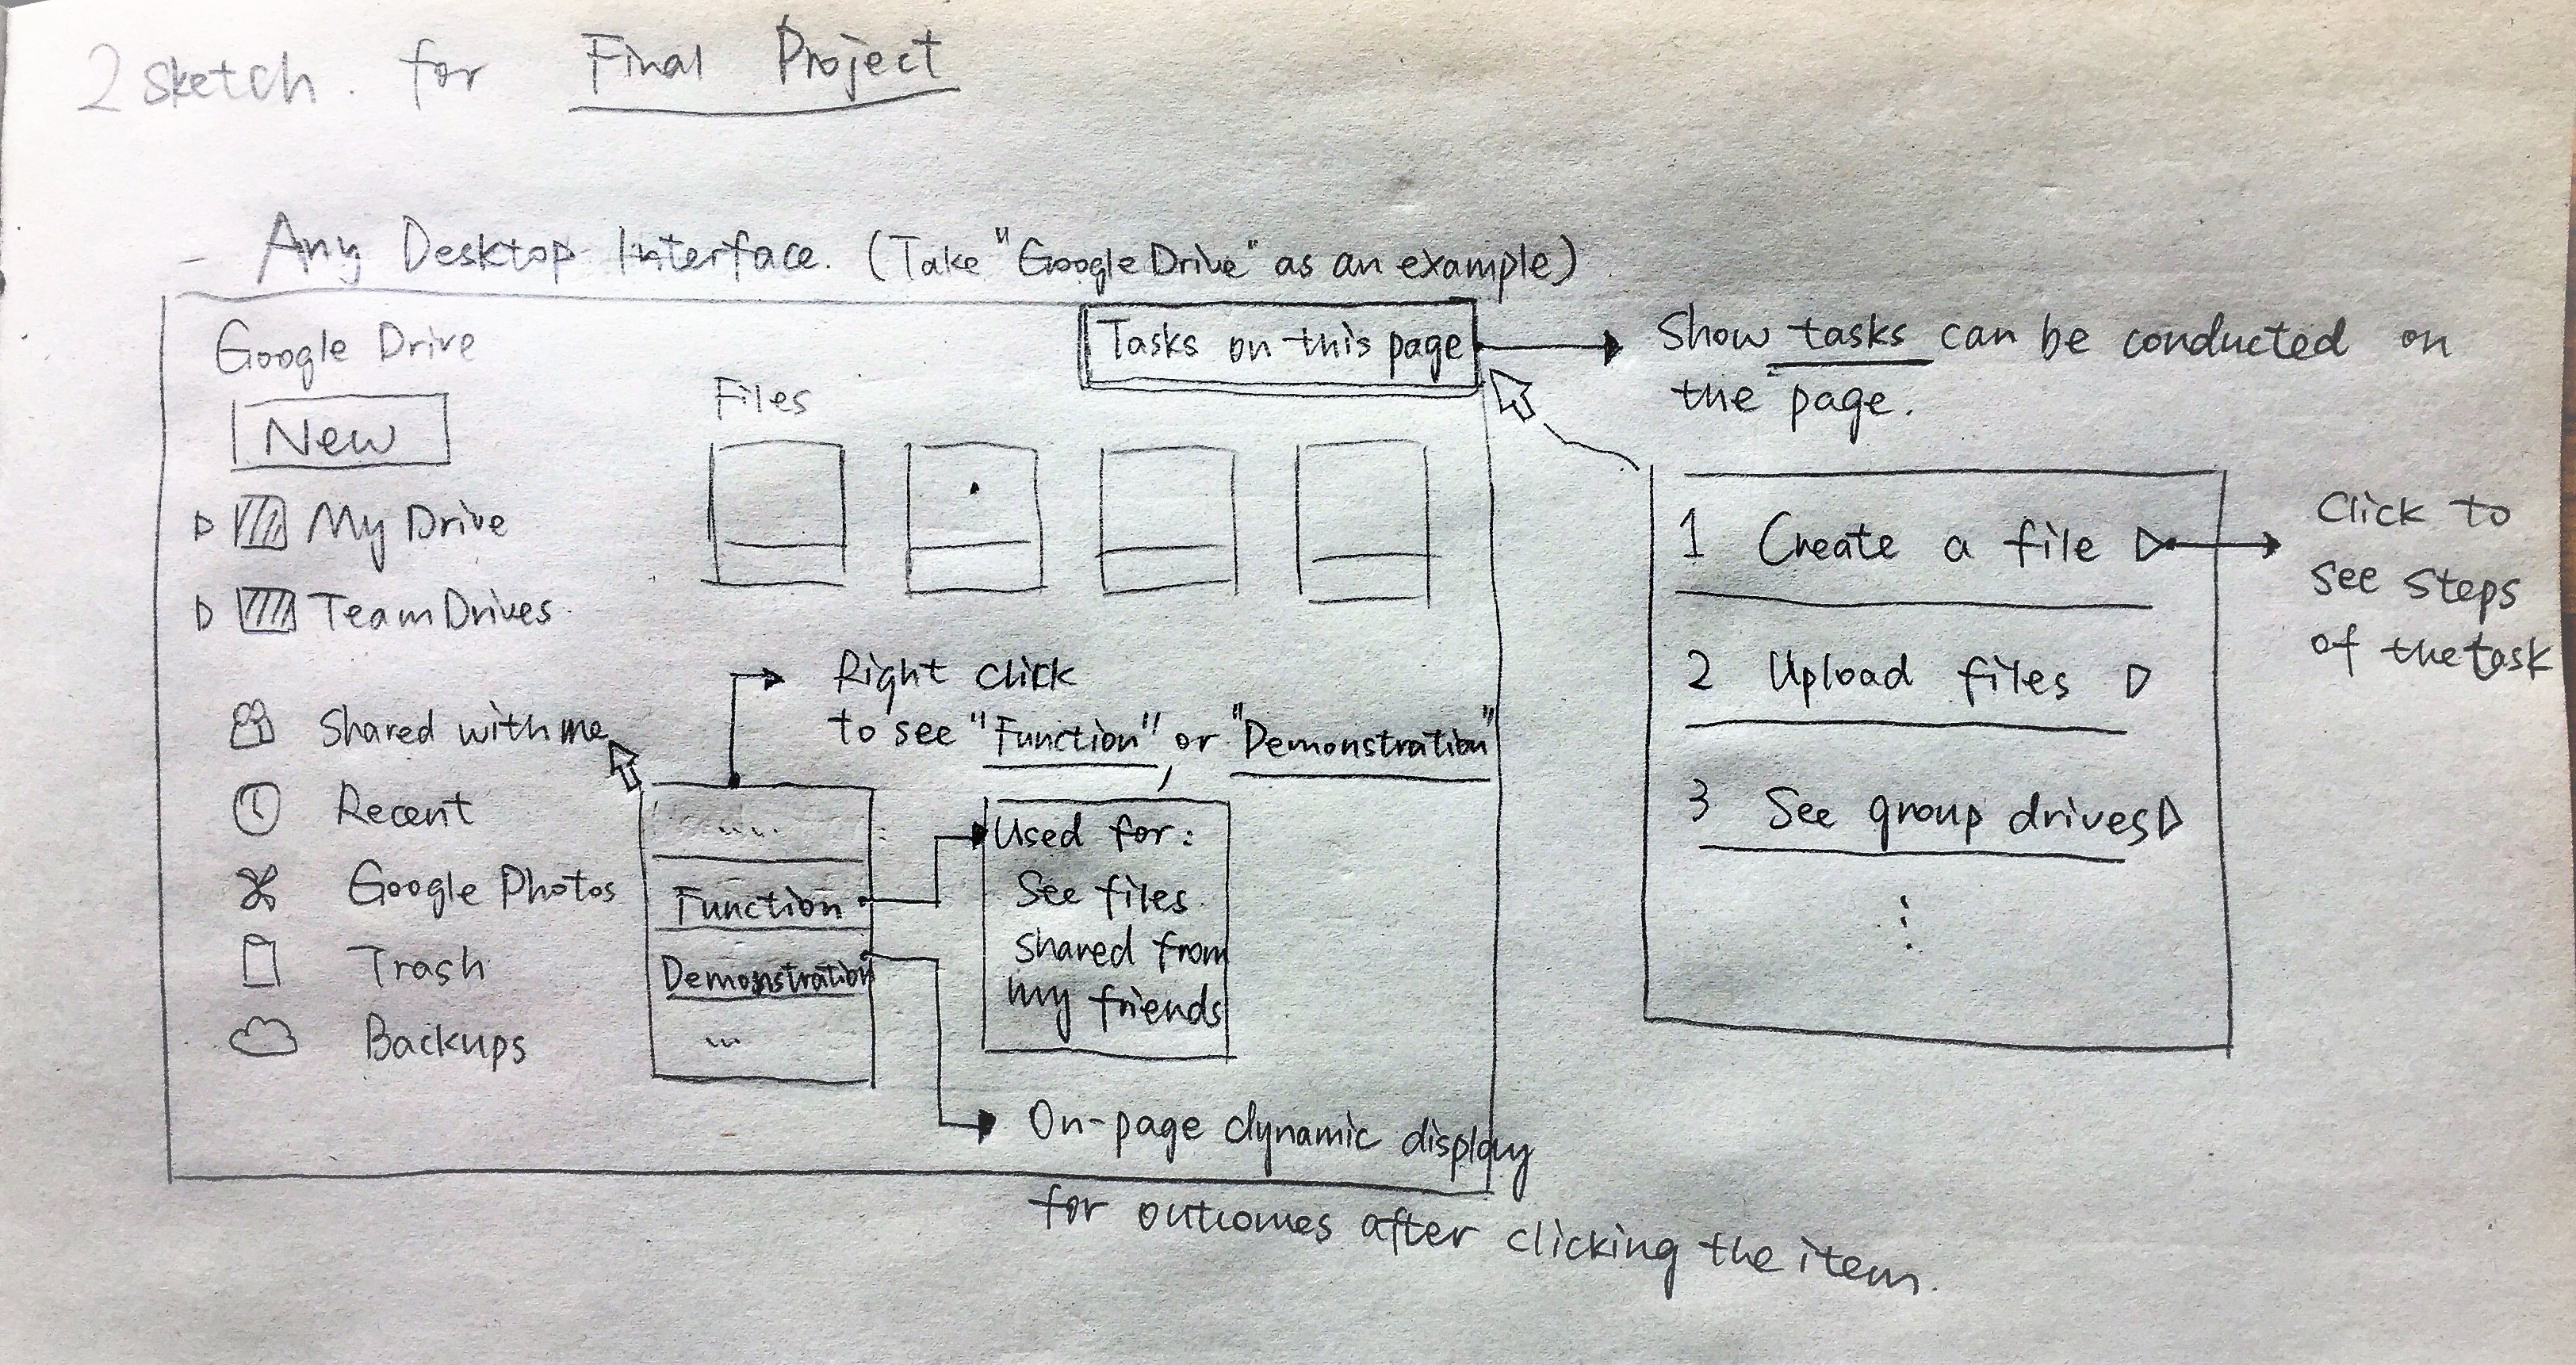 2 sketch. for Final Project
- Any Desktop Interface. (Take "Google Drive" as an example)
Google Drive
New
My Drive
Team Drives
Shared with me
Recent
Google Photos
Trash
Backups
Files
Tasks on this page
Show tasks can be conducted on
the page.
1 Create a file
2 Upload files
3 See group drives
⋮
Click to
see steps
of the task
Right click
to see "Function" or "Demonstration"
...
Function
Demonstration
...
Used for:
See files
shared from
my friends
On-page dynamic display
for outcomes after clicking the item.